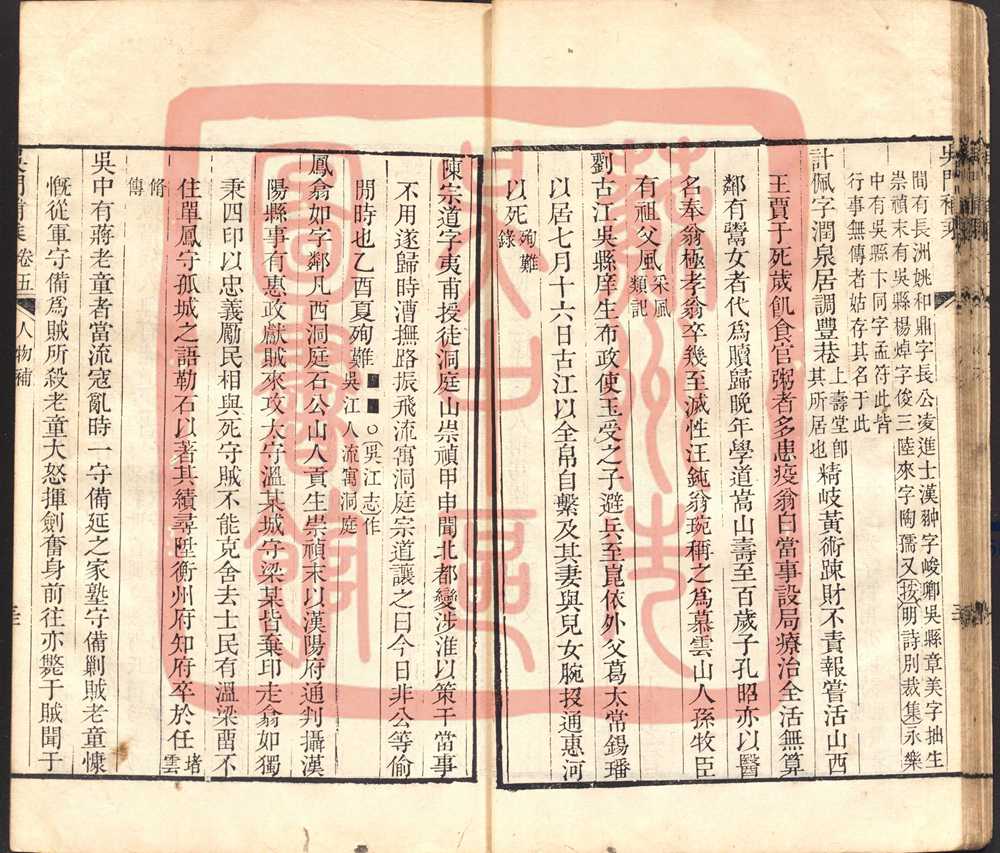 間有長洲姚和鼎字長公凌進士漢翀字峻卿吳縣章美字拙生
崇禎末有吳縣楊焯字俊三陸來字陶孺又按明詩別裁集永樂
中有吳縣卞同字孟符此皆
行事無傳者姑存其名于此
計佩字潤泉居調豐巷上壽堂卽其所居也精岐黃術踈財不責報嘗活山西
王賈于死歲飢食官粥者多患疫翁白當事設局療治全活無算
鄰有鬻女者代爲贖歸晚年學道嵩山壽至百歲子孔昭亦以醫
名奉翁極孝翁卒幾至滅性汪鈍翁琬稱之爲慕雲山人孫牧臣
有祖父風采風類記
劉古江吳縣庠生布政使玉受之子避兵至崑依外父葛太常錫璠
以居七月十六日古江以全帛自繫及其妻與兒女腕投通惠河
以死殉難錄
陳宗道字夷甫授徒洞庭山崇禎甲申聞北都變涉淮以策干當事
不用遂歸時漕撫路振飛流寓洞庭宗道讓之曰今日非公等偷
閒時也乙酉夏殉難○吳江志作吳江人流寓洞庭
鳳翁如字鄰凡西洞庭石公山人貢生崇禎末以漢陽府通判攝漢
陽縣事有惠政獻賊來攻太守溫某城守梁某皆棄印走翁如獨
秉四印以忠義勵民相與死守賊不能克舍去士民有溫梁畱不
住單鳳守孤城之語勒石以著其績尋陞衡州府知府卒於任堵雲
脩傳
吳中有蔣老童者當流寇亂時一守備延之家塾守備剿賊老童慷
慨從軍守備爲賊所殺老童大怒揮劍奮身前往亦斃于賊聞于
吳門補乘
卷五
人物補